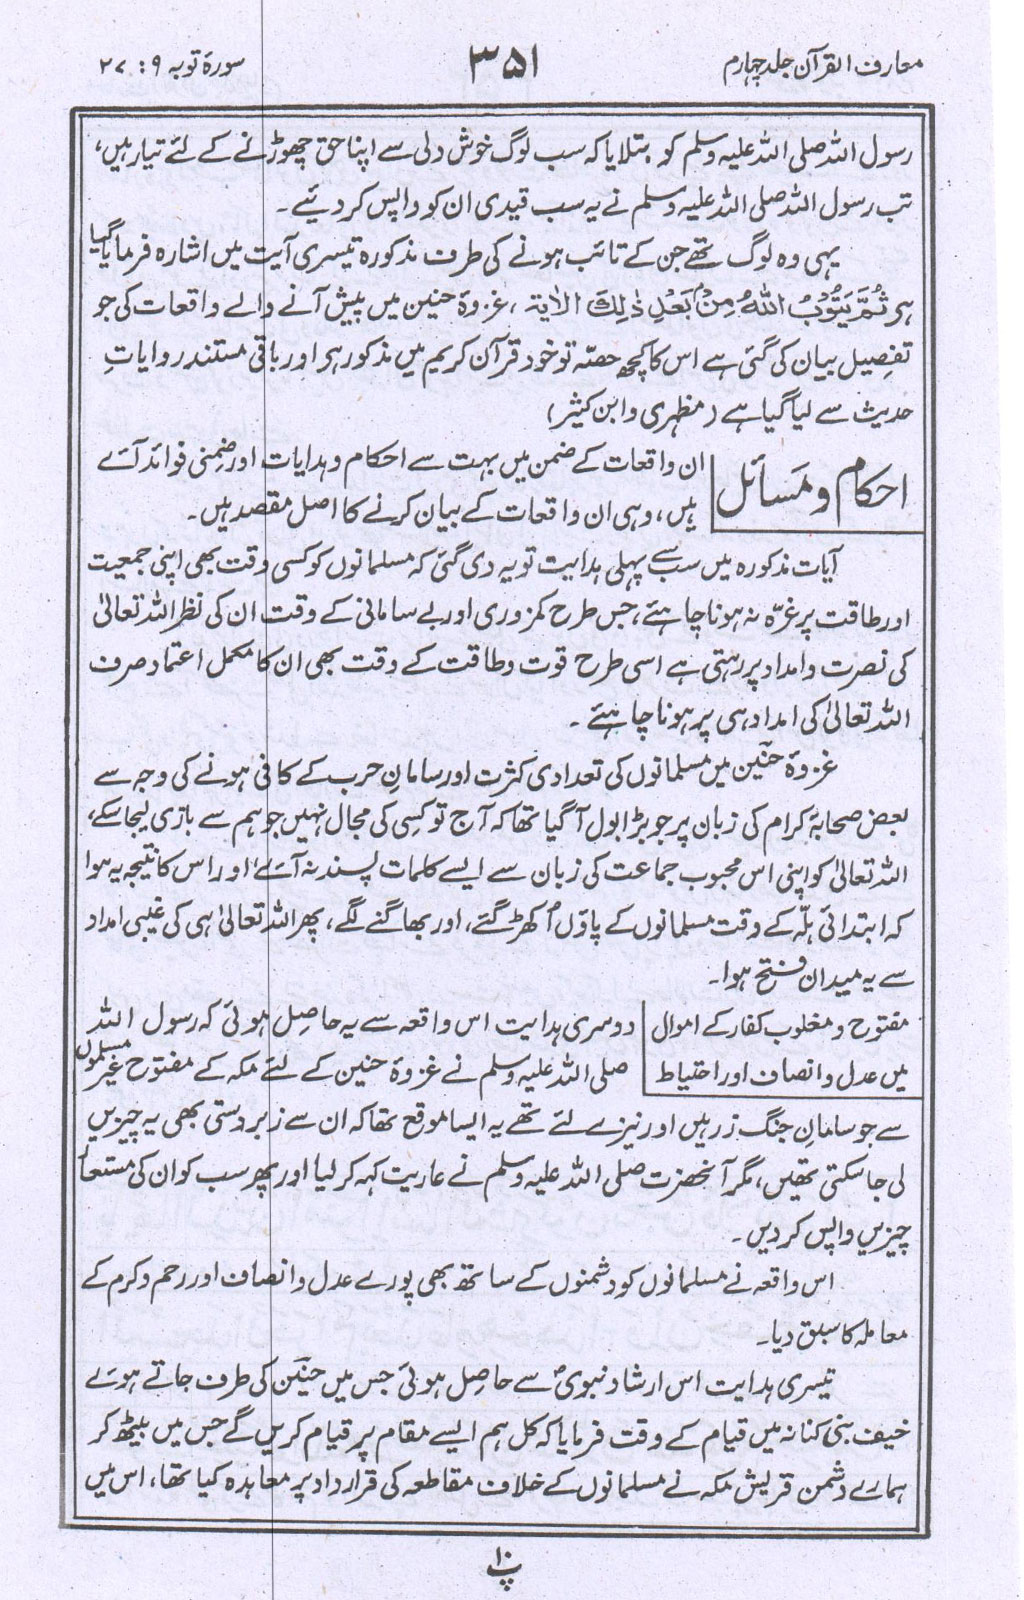 معارف القرآن جلد چہارم
۳۵۱
سورۃ توبہ ۹ : ۲۷
رسول اللہ صلی اللہ علیہ وسلم کو بتلایا کہ سب لوگ خوش دلی سے اپنا حق چھوڑنے کے لئے تیار ہیں،
تب رسول اللہ صلی اللہ علیہ وسلم نے یہ سب قیدی ان کو واپس کر دیئے۔
یہی وہ لوگ تھے جن کے تائب ہونے کی طرف مذکورہ تیسری آیت میں اشارہ فرمایا گیا
ہر ثُمَّ يَتُوْبُ اللّٰهُ مِنْۢ بَعْدِ ذٰلِكَ الاٰیۃ ، غزوۃ حنین میں پیش آنے والے واقعات کی جو
تفصیل بیان کی گئی ہے اس کا کچھ حصّہ تو خود قرآن کریم میں مذکور ہر اور باقی مستند روایاتِ
حدیث سے لیا گیا ہے (مظہری وابن کثیر)
احکام ومَسَائل
ان واقعات کے ضمن میں بہت سے احکام و ہدایات اور ضِمنی فوائد آئے
ہیں، وہی ان واقعات کے بیان کرنے کا اصل مقصد ہیں۔
آیات مذکورہ میں سب سے پہلی ہدایت تو یہ دی گئی کہ مسلمانوں کو کسی وقت بھی اپنی جمعیت
اور طاقت پر غرّہ نہ ہونا چاہئے، جس طرح کمزوری اور بے سامانی کے وقت ان کی نظر اللہ تعالیٰ
کی نصرت و امداد پر رہتی ہے اسی طرح قوت وطاقت کے وقت بھی ان کا مکمل اعتماد صرف
اللہ تعالیٰ کی امداد ہی پر ہونا چاہئے ۔
غزوۃ حنین میں مسلمانوں کی تعدادی کثرت اور سامانِ حرب کے کافی ہونے کی وجہ سے
بعض صحابۂ کرام کی زبان پر جو بڑا بول آگیا تھا کہ آج تو کسِی کی مجال نہیں جو ہم سے بازی لیجا سکے،
اللہ تعالیٰ کو اپنی اس محبوب جماعت کی زبان سے ایسے کلمات پسند نہ آئے، اور اس کا نتیجہ یہ ہوا
کہ ابتدائی ہلّہ کے وقت مسلمانوں کے پاؤں اُکھڑ گئے، اور بھاگنے لگے، پھر اللہ تعالیٰ ہی کی غیبی امداد
سے یہ میدان فتح ہوا۔
مفتوح و مغلوب کفار کے اموال
میں عدل وانصاف اور احتیاط
دوسری ہدایت اس واقعہ سے یہ حاصِل ہوئی کہ رسول اللہ
صلی اللہ علیہ وسلم نے غزوۃ حنین کے لئے مکہ کے مفتوح غیر مسلموں
سے جو سامانِ جنگ زرہیں اور نیزے لئے تھے یہ ایسا موقع تھا کہ ان سے زبردستی بھی یہ چیزیں
لی جا سکتی تھیں، مگر آنحضرت صلی اللہ علیہ وسلم نے عاریت کہہ کر لیا اور پھر سب کو ان کی مستعار
چیزیں واپس کر دیں۔
اس واقعہ نے مسلمانوں کو دشمنوں کے ساتھ بھی پورے عدل وانصاف اور رحم وکرم کے
معاملہ کا سبق دیا۔
تیسری ہدایت اس ارشاد نبوی ؐ سے حاصِل ہوئی جس میں حنین کی طرف جاتے ہوئے
خیف بنی کنانہ میں قیام کے وقت فرمایا کہ کل ہم ایسے مقام پر قیام کریں گے جس میں بیٹھ کر
ہمارے دشمن قریش مکہ نے مسلمانوں کے خلاف مقاطعہ کی قرارداد پر معاہدہ کیا تھا، اس میں
پ۱۰